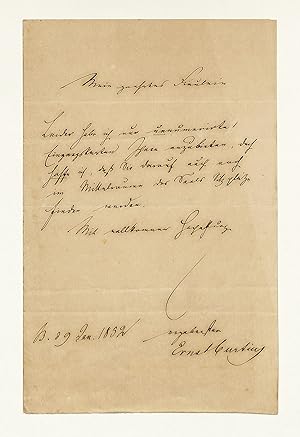 Mein geehrtes Fräulein
Leider habe ich nur unnumerirte
Eingangskarten Ihnen anzubieten, doch
hoffe ich, daß Sie darauf auch noch
im Mittelraume des Saals Sitzplätze
finden werden.
Mit vollkommner Hochachtung
B. 29 Jan. 1882
ergebenster
Ernst Curtius